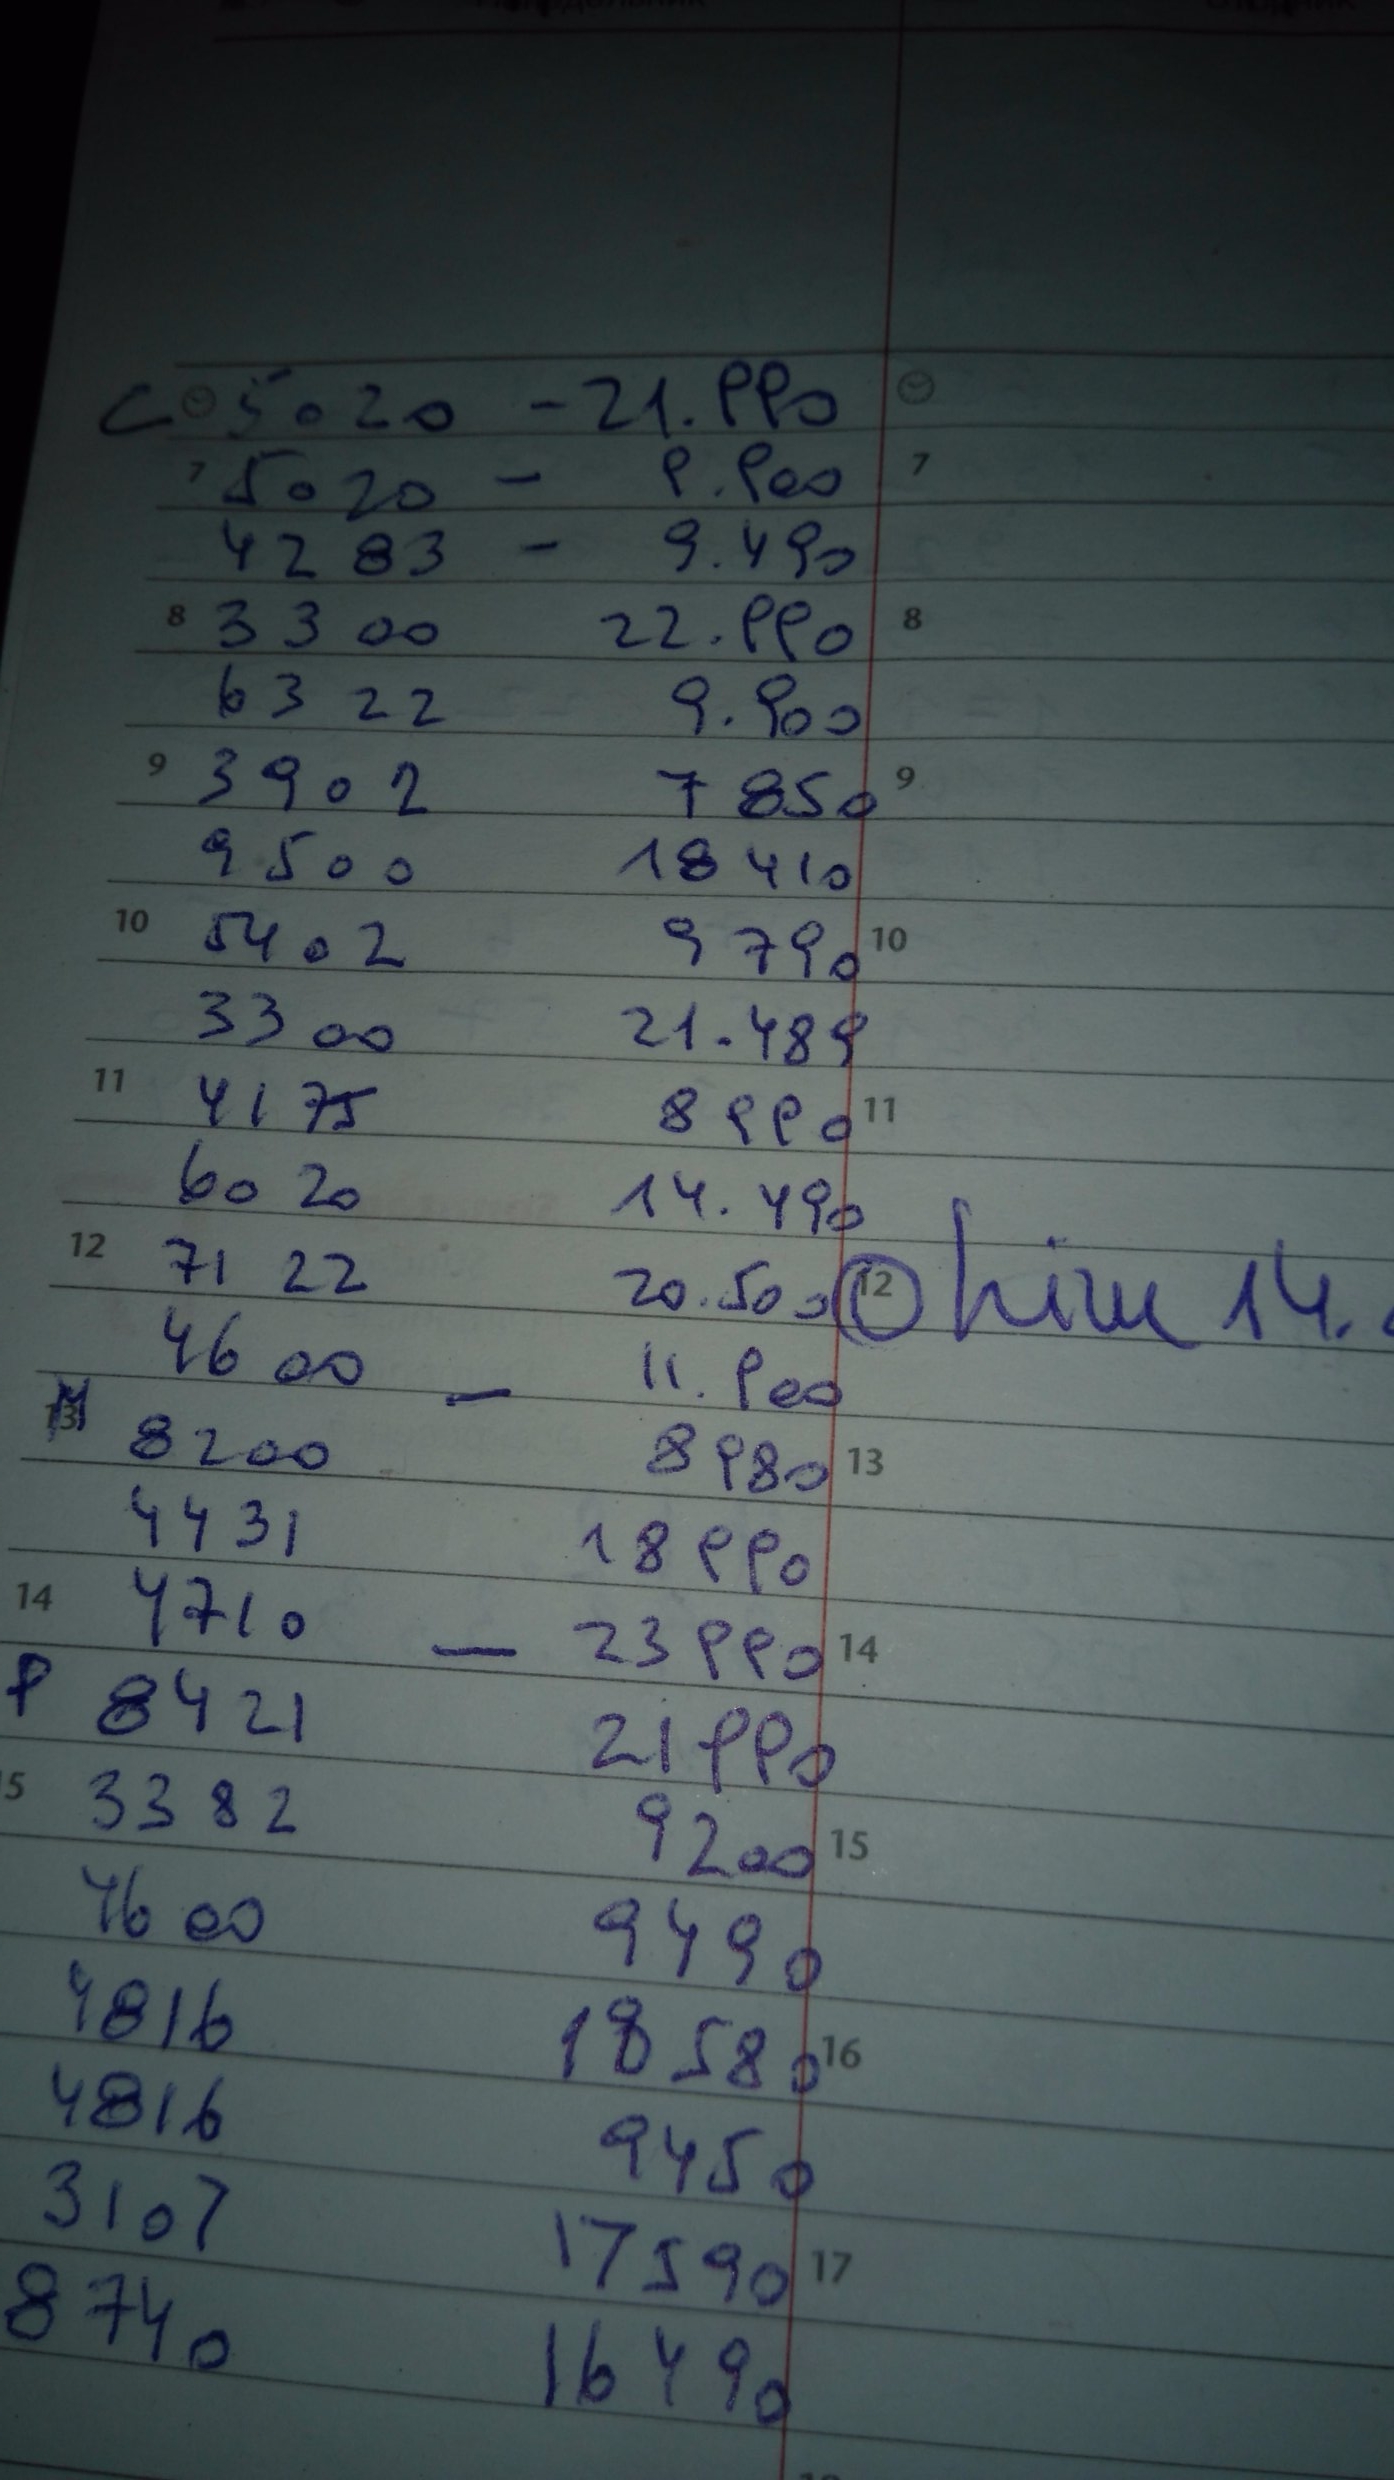 Понедельник
C 5020 - 21.990
7 5020 - 9.900 7
4283 - 9.490
8 3300 22.990 8
6322 9.900
9 3902 7850 9
9500 18410
10 5402 9790 10
3300 21.489
11 4175 8990 11
6020 14.490
12 7122 20.500 12
him 14.
4600 - 11.900
13 8200 8980 13
4431 18990
14 4710 - 23990 14
P 8421 21990
15 3382 9200 15
4600 9490
4816 18580 16
4816 9450
3107 17590 17
8740 16490